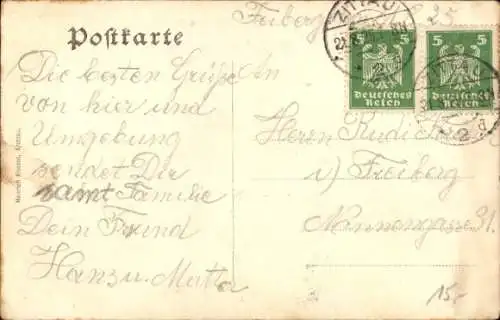 Freiberg 25.
Postkarte
ZITTAU
5 5
Deutsches Reich
Deutsches Reich
Die besten Grüße
von hier und
Umgebung
sendet Dir
samt Familie
Dein Freund
Hans u. Mutter
An
Herrn Rudi
i/ Freiberg
Nonnengasse 31.
15.-